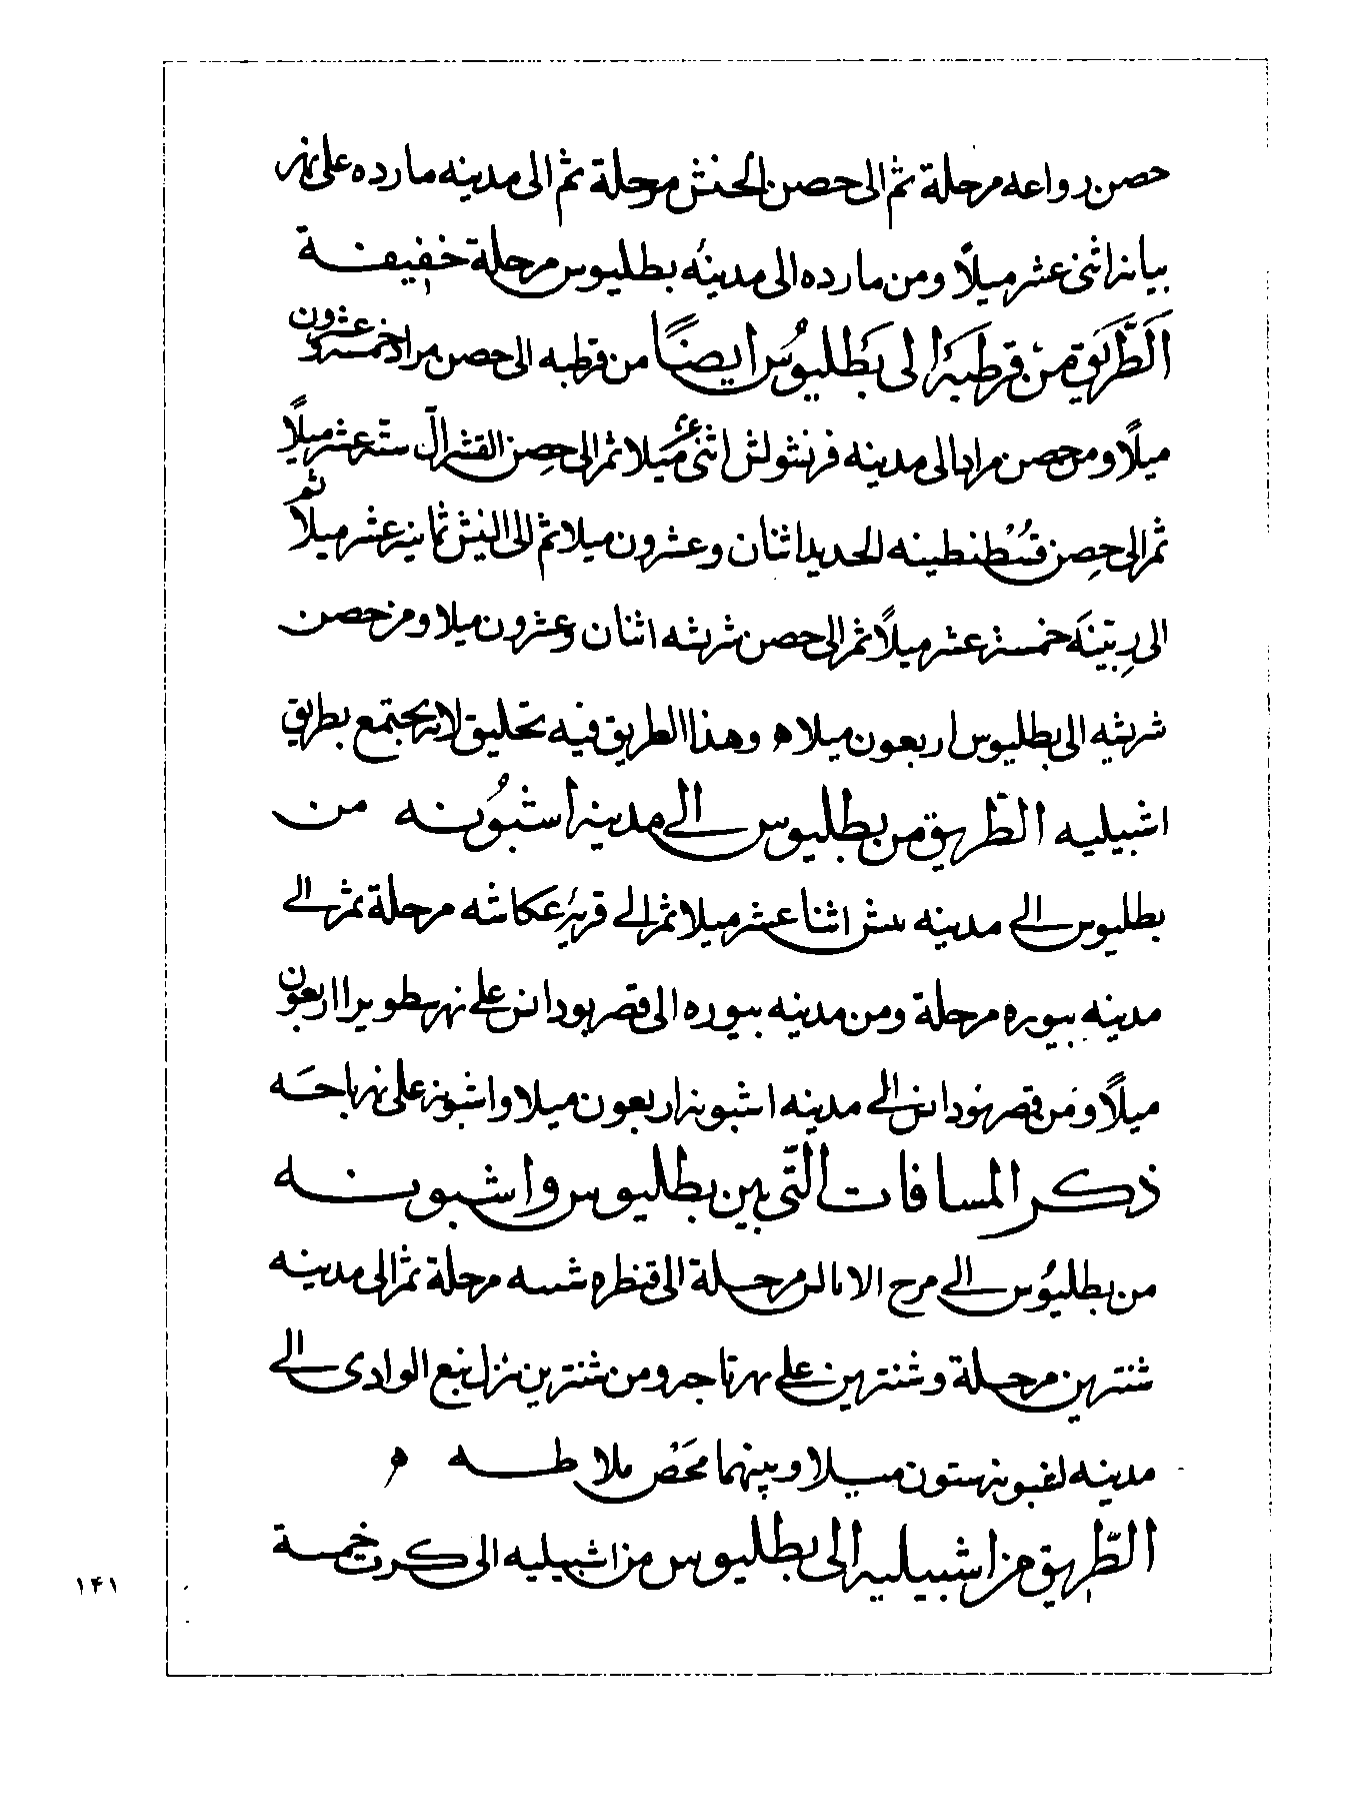 حصن رواعه مرحلة ثم الى حصن الحنش مرحلة ثم الى مدينه مارده على نهر
بيانه اثنى عشر ميلًا ومن مارده الى مدينه بطليوس مرحلة خفيفة
اَلطَّرَيق مِنْ قرطبَة الى بَطليوُس ايضًا من قرطبه الى حصن مراد خمسة وعشرون
ميلًا ومن حصن مراد الى مدينه فرنشولش اثنى عشر ميلا ثم الى حِصن القشرال ستة عشر ميلًا
ثم الى حِصن قُسْطنطينه الحديد اثنان وعشرون ميلا ثم الى النيش ثمانية عشر ميلًا ثم
الى رِبتينَه خمسة عشر ميلًا ثم الى حصن شريشه اثنان وعشرون ميلا ومن حصن
شريشه الى بطليوس اربعون ميلا ه وهذا الطريق فيه تحليق لانه يجتمع بطريق
اشبيليه الطّريق من بطليوس الى مدينة اشبوُنه من
بطليوس الى مدينه اثنا عشر ميلا ثم الى قرية عكاشه مرحلة ثم الى
مدينه بيبوره مرحلة ومن مدينه بيبوره الى قصر بودانس على نهر سطوبيرا اربعون
ميلًا ومَن قصر بودانس الى مدينه اشبونه اربعون ميلا واشبونه على نهر باجَه
ذكر المسافات الّتي بين بطليوس واشبونه
من بطليوُس الى مرج مرحلة الى قنطره مرحلة ثم الى مدينه
شنترين مرحلة وشنترين على نهر تاجه ومن شنترين نزل تبع الوادى الى
مدينه لشبونه ستون ميلا وبينهما فحَصْ بلاطه ه
الطّريق من اشبيليه الى بطليوس من اشبيليه الى خمسة
١٤١